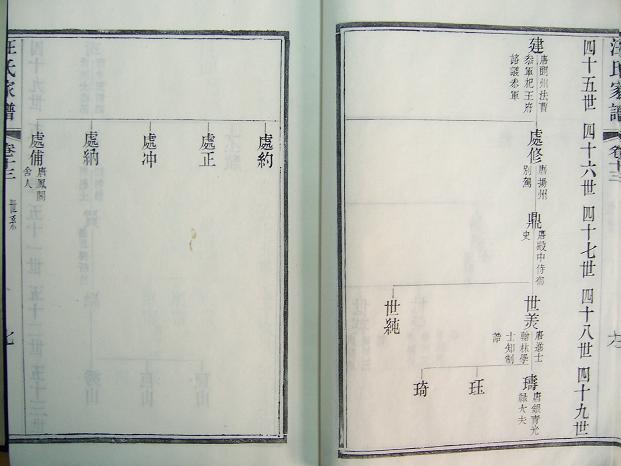 汪氏家譜
卷十三
四十五世 四十六世 四十七世 四十八世 四十九世
建
唐
州法曹
參軍杞王府
諮議參軍
處修
唐揚州
別駕
鼎
唐殿中侍御
史
世美
唐進士
翰林學
士知制
誥
璹
唐銀青光
祿大夫
珏
琦
世純
處約
處正
處冲
處納
處備
唐鳳閣
舍人
汪氏家譜
卷十三
世系